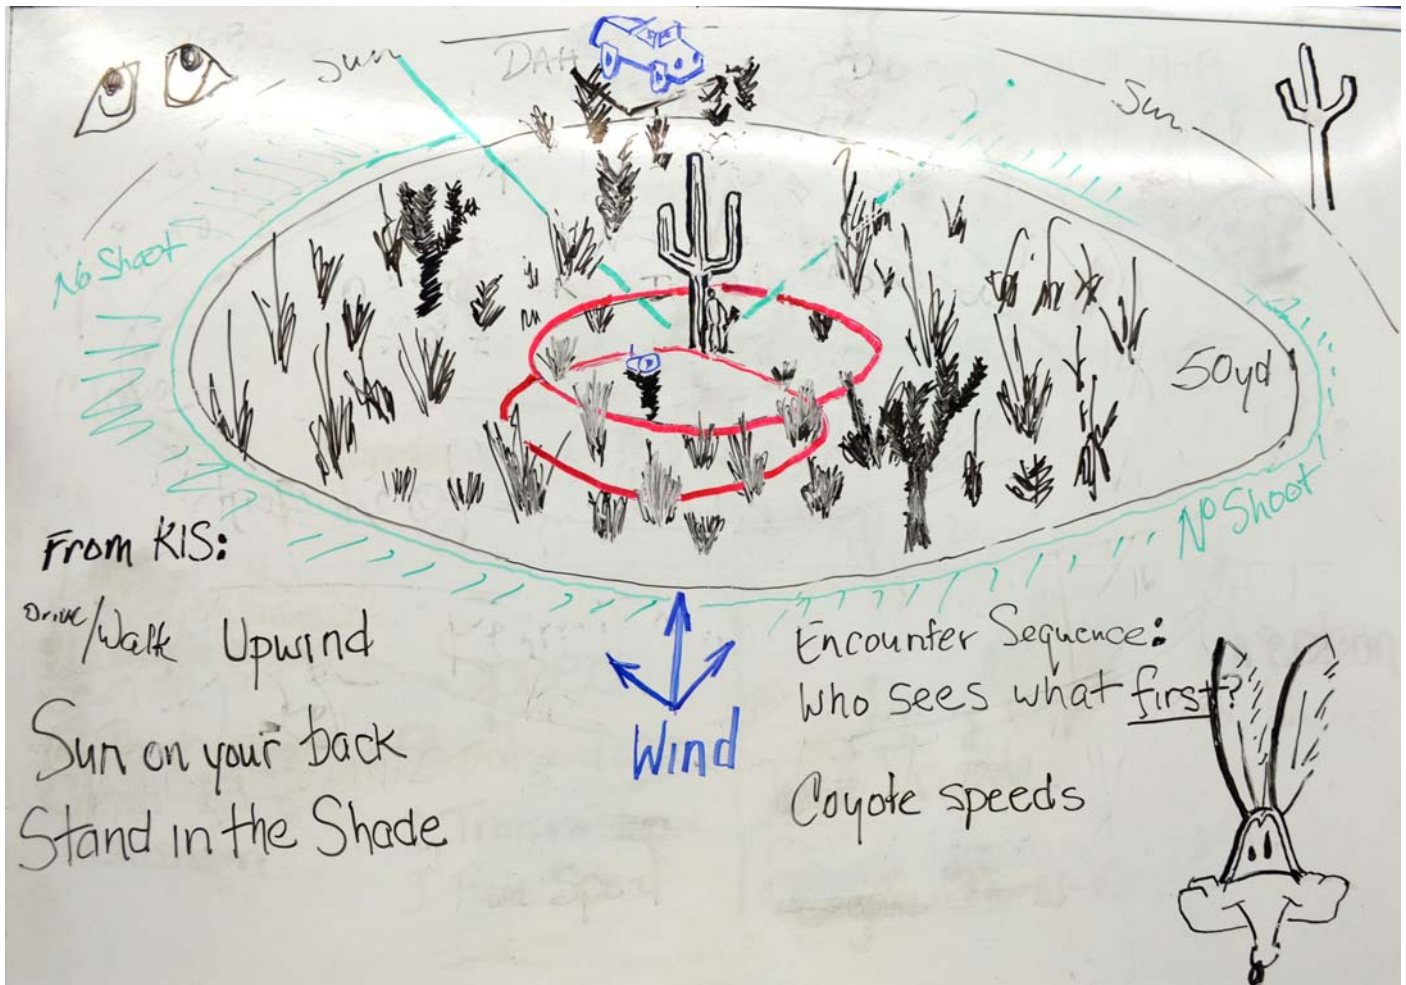 Sun
Sun
No Shoot
50yd
No Shoot
From KIS:
Drive/Walk Upwind
Sun on your back
Stand in the Shade
Wind
Encounter Sequence:
Who sees what first?
Coyote speeds